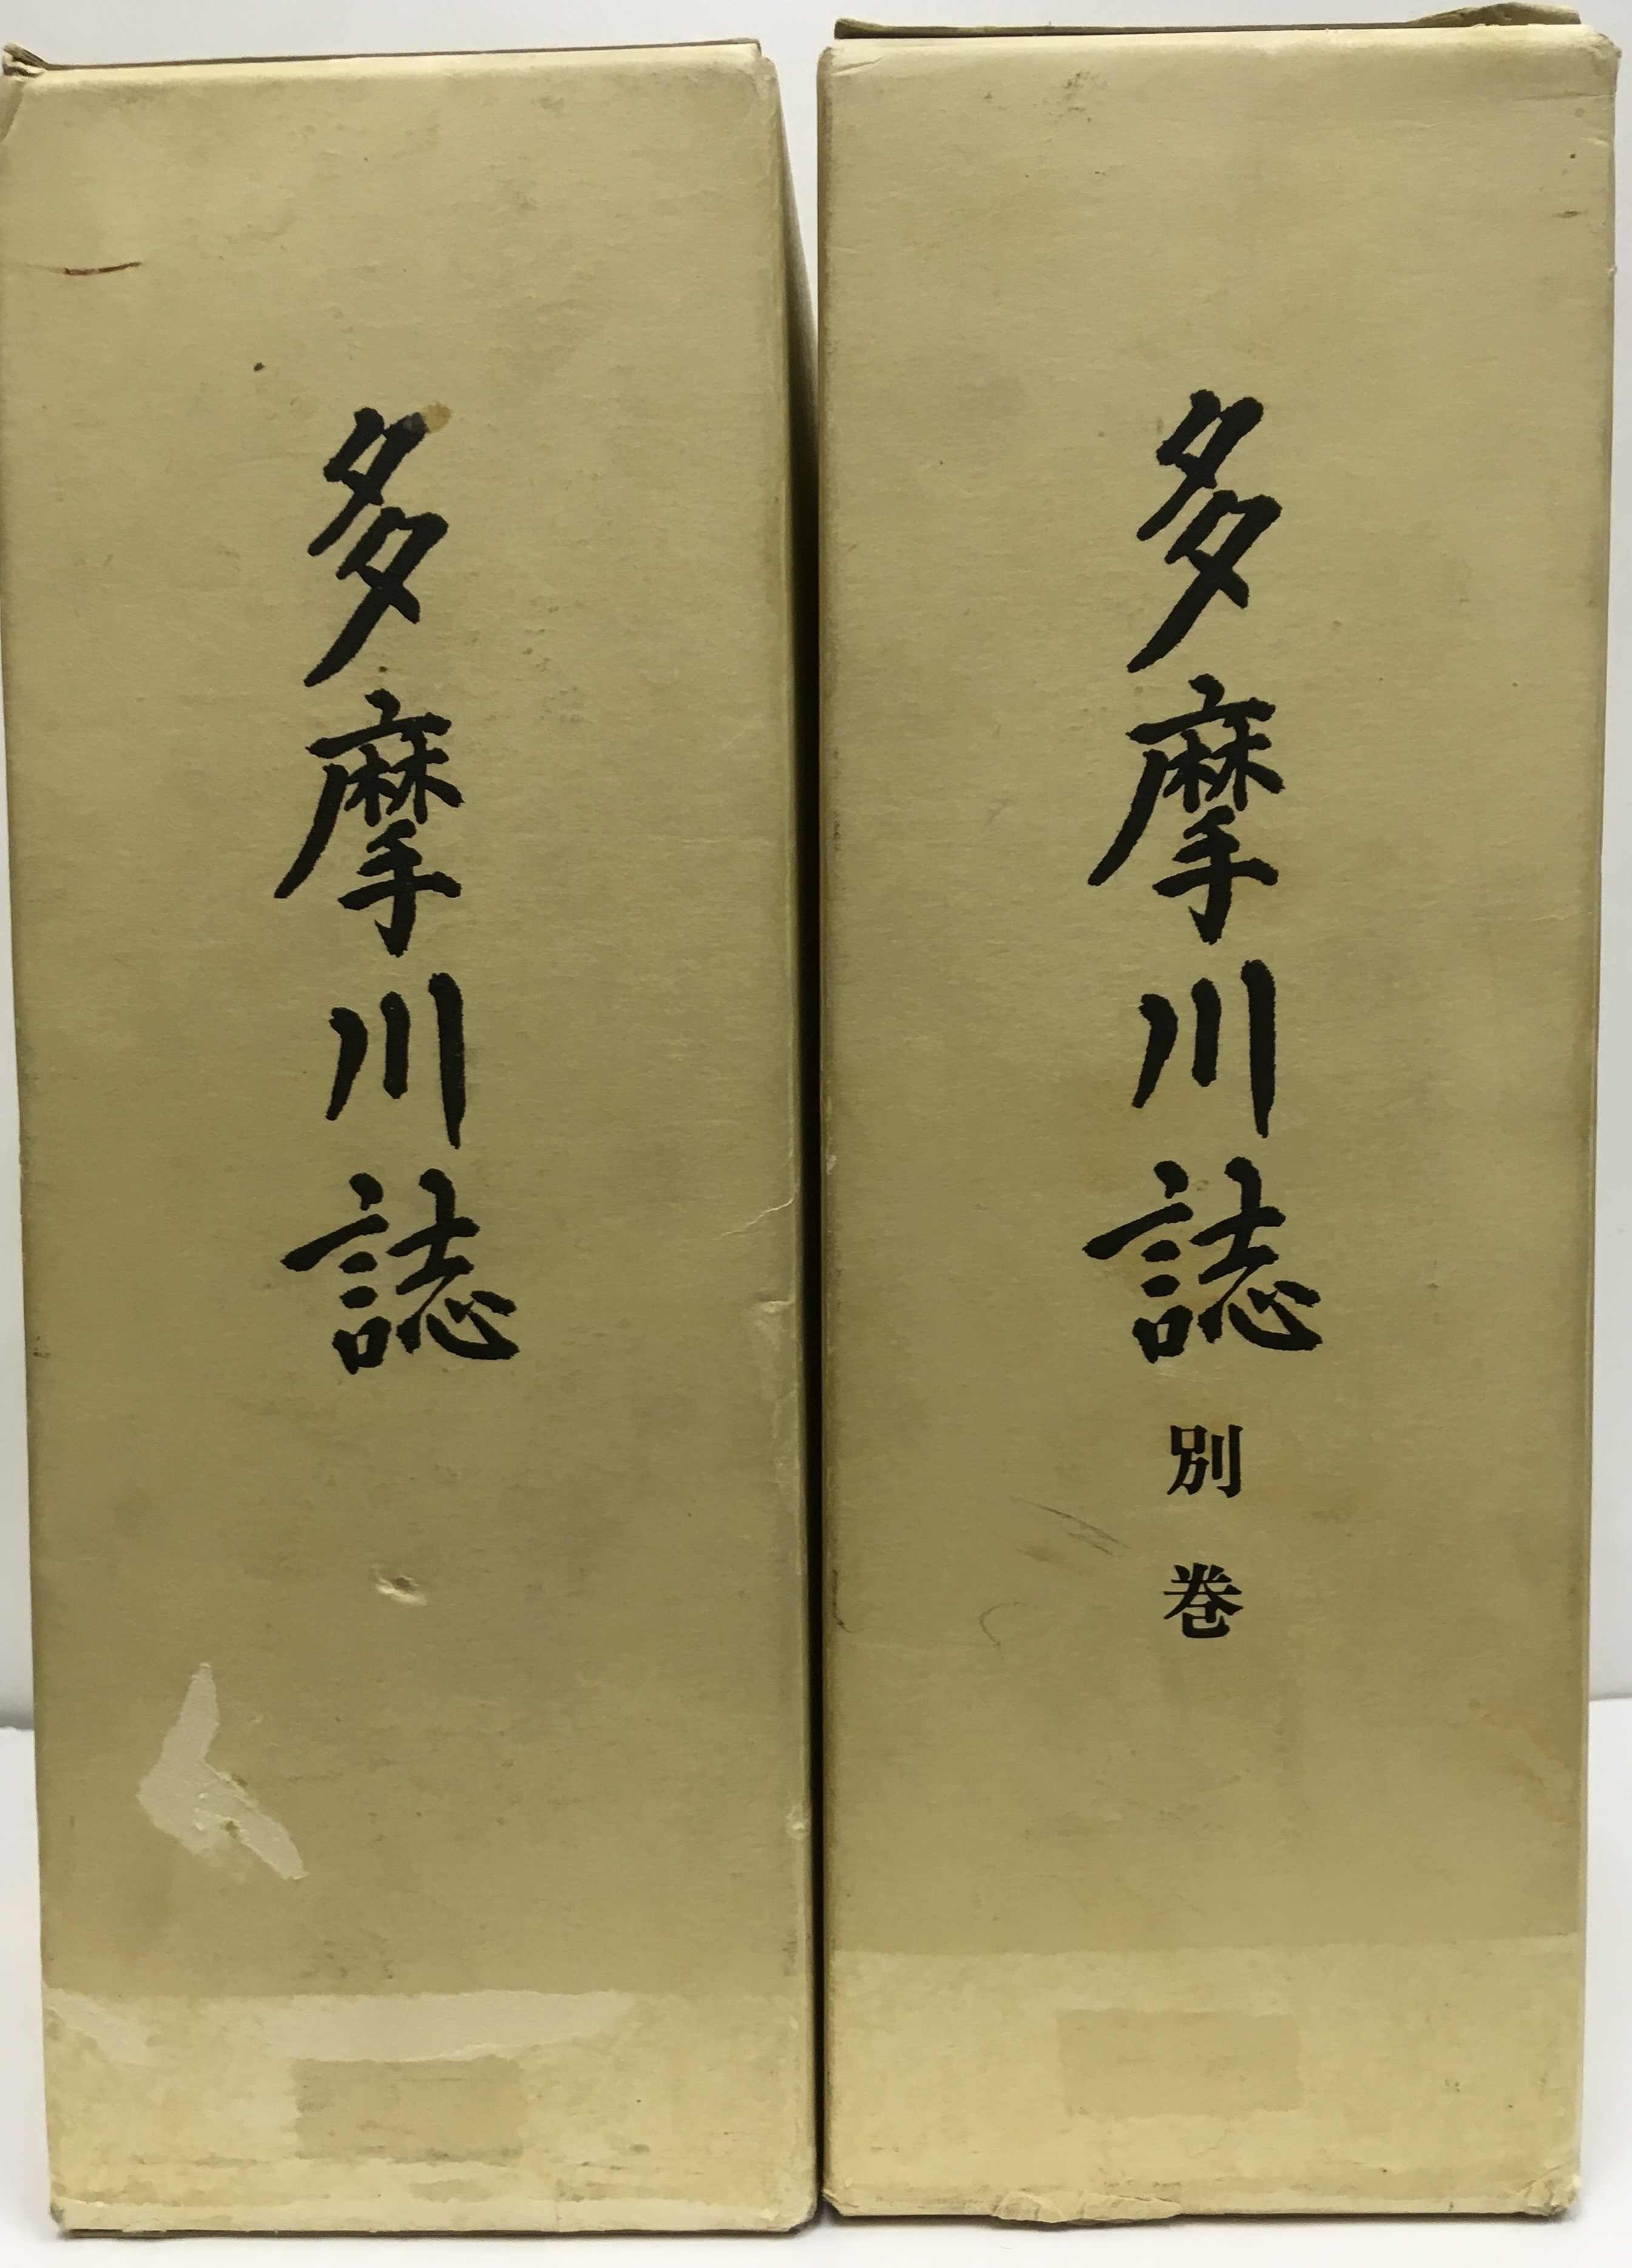 多摩川誌
多摩川誌 別巻